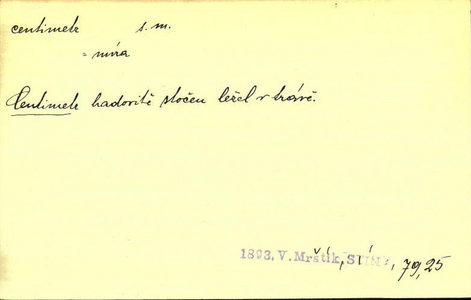 centimetr s. m.
= míra
Centimetr hadovitě stočen ležel v trávě.
1893, V. Mrštík, STÍNY, 79,25